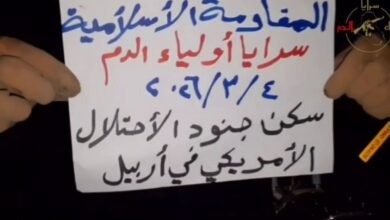 المقاومة الأسلامية
سرايا أولياء الدم
٢٠٢٦/٣/٤
سكن جنود الأحتلال
الأمريكي في أربيل
سرايا
الدم